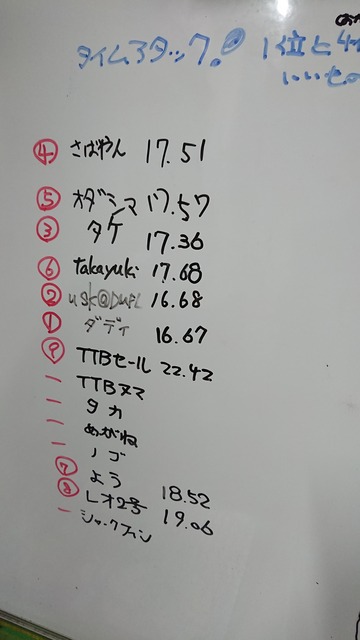 タイムアタック! 1位と4
いいもの
④ さばやん 17.51
⑤ オダジマ 17.57
③ タケ 17.36
⑥ takayuki 17.68
② usk@DUEL 16.68
① ダディ 16.67
⑨ TTBセール 22.42
― TTBヌマ
― タカ
― めがね
― ノゴ
⑦ よう 18.52
⑧ レオ2号 19.06
― シャークファン